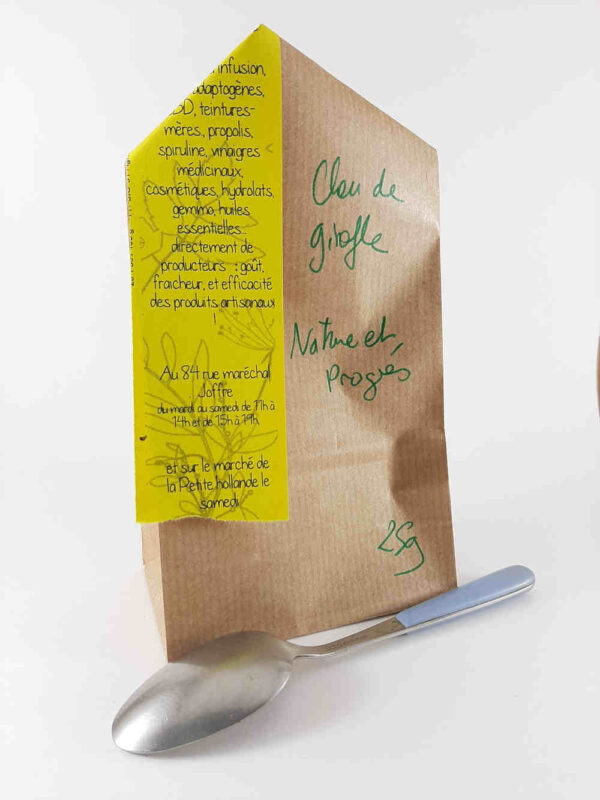 infusion,
adaptogènes,
teintures-
mères., propolis,
spiruline, vinaigres
médicinaux,
cosmétiques, hydrolats,
gemmo, huiles
essentielles...
directement de
producteurs : goût,
fraicheur, et efficacité
des produits artisanaux
!
Au 84 rue maréchal
Joffre
du mardi au samedi de 11h à
14h et de 15h à 19h
et sur le marché de
la Petite hollande le
samedi
Clou de
girofle
Nature et
Progrès
25g